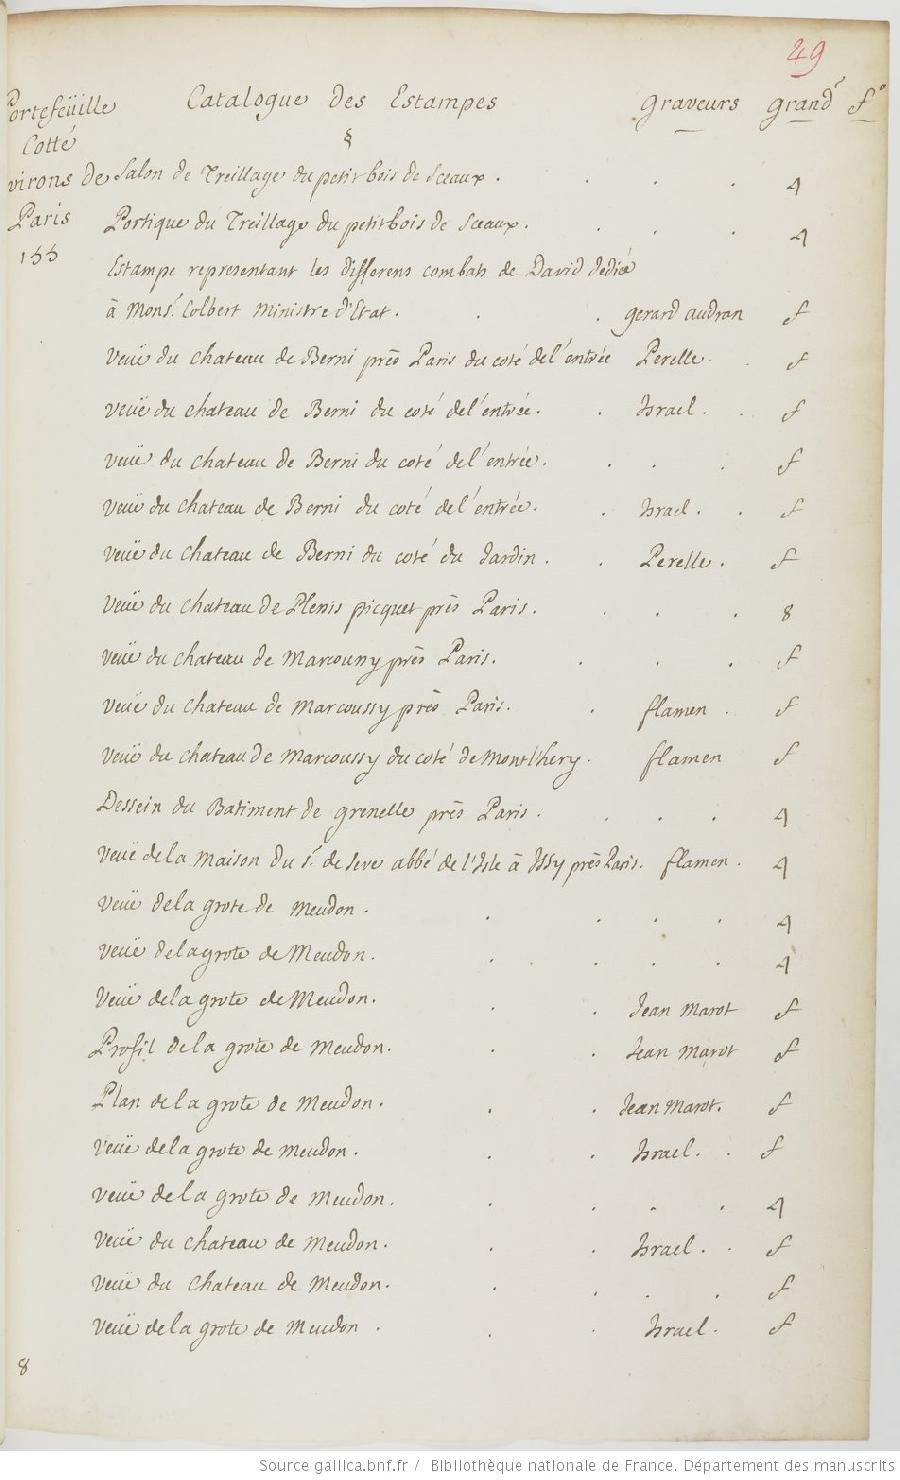 49
Portefeüille Catalogue des Estampes graveurs grand.r f.o
Cotté §
virons de Salon de Treillage du petit bois de Sceaux . . . . 4
Paris Portique du Treillage du petit bois de Sceaux. . . . 4
155 Estampe representant les differens combats de David dedié
à Mons.r Colbert Ministre d'Etat. . . gerard audran f
Veuë du chateau de Berni près Paris du coté de l'entrée Perelle . . f
veuë du chateau de Berni du coté de l'entrée. . Israel . . f
veuë du chateau de Berni du coté de l'entrée. . . . f
veuë du chateau de Berni du coté de l'entrée. . Israel . . f
veuë du chateau de Berni du coté du Jardin . . Perelle . f
veuë du chateau de Plenis picquet près Paris. . . . 8
veuë du chateau de Marcouny près Paris. . . . f
veuë du chateau de Marcoussy près Paris. . flamen . f
veuë du chateau de Marcoussy du coté de Montlhery. flamen f
Dessein du Batiment de grenelle près Paris . . . . 4
veuë de la maison du s.r de seve abbé de l'Isle à Issy près Paris. flamen . 4
veuë de la grote de meudon . . . . . 4
veuë de la grote de Meudon. . . . . . 4
veuë de la grote de Meudon. . . Jean marot f
Profil de la grote de meudon. . . Jean marot f
Plan de la grote de meudon. . . Jean Marot. f
veuë de la grote de meudon. . . Israel. . f
veuë de la grote de meudon. . . . . 4
veuë du chateau de meudon. . . Israel . . f
veuë du chateau de Meudon. . . . . f
veuë de la grote de meudon . . . Israel . f
8
Source gallica.bnf.fr / Bibliothèque nationale de France. Département des manuscrits